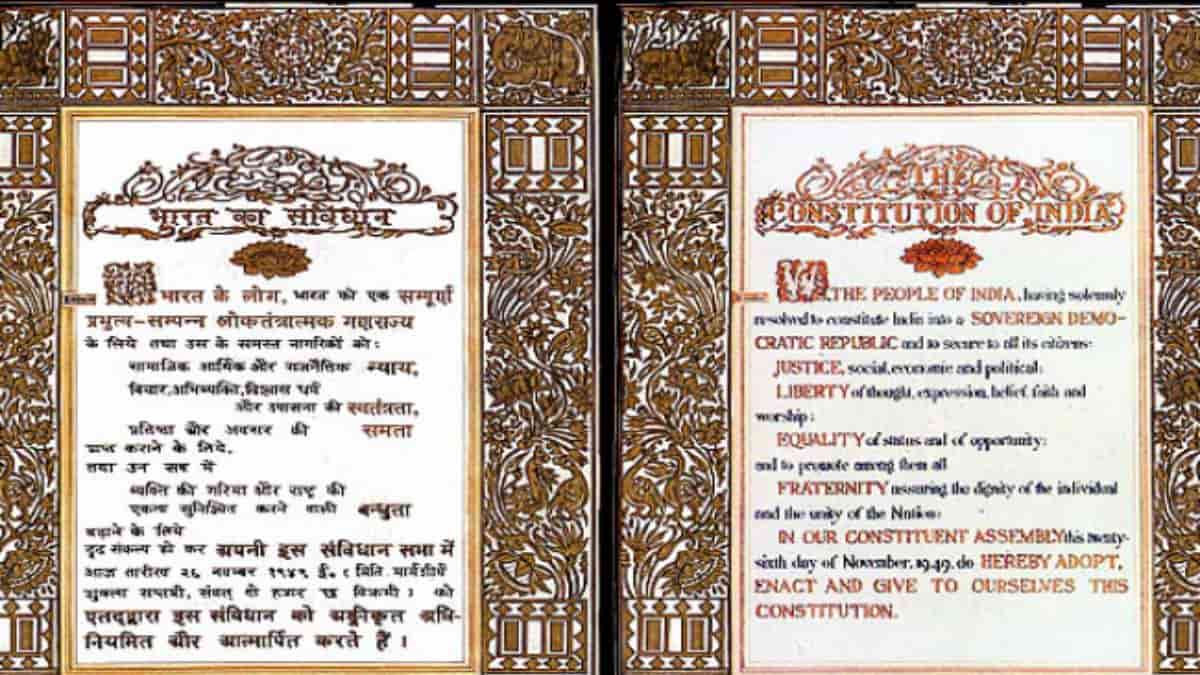 भारत का संविधान
भारत के लोग, भारत को एक सम्पूर्ण
प्रभुत्व-सम्पन्न लोकतंत्रात्मक गणराज्य
के लिये तथा उस के समस्त नागरिकों को:
सामाजिक आर्थिक और राजनैतिक न्याय,
विचार,अभिव्यक्ति,विश्वास धर्म
और उपासना की स्वतंत्रता,
प्रतिष्ठा और अवसर की समता
प्राप्त कराने के लिये,
तथा उन सब में
व्यक्ति की गरिमा और राष्ट्र की
एकता सुनिश्चित करने वाली बन्धुता
बढ़ाने के लिये
दृढ संकल्प हो कर अपनी इस संविधान सभा में
आज तारीख २६ नवम्बर १९४९ ई. ( मिति मार्गशीर्ष
शुक्ला सप्तमी, संवत् दो हजार छह विक्रमी ) को
एतद्द्वारा इस संविधान को अङ्गीकृत अधि-
नियमित और आत्मार्पित करते हैं ।
THE
CONSTITUTION OF INDIA
WE, THE PEOPLE OF INDIA, having solemnly
resolved to constitute India into a SOVEREIGN DEMO-
CRATIC REPUBLIC and to secure to all its citizens:
JUSTICE, social, economic and political;
LIBERTY of thought, expression, belief, faith and
worship;
EQUALITY of status and of opportunity;
and to promote among them all
FRATERNITY assuring the dignity of the individual
and the unity of the Nation;
IN OUR CONSTITUENT ASSEMBLY this twenty-
sixth day of November, 1949, do HEREBY ADOPT,
ENACT AND GIVE TO OURSELVES THIS
CONSTITUTION.